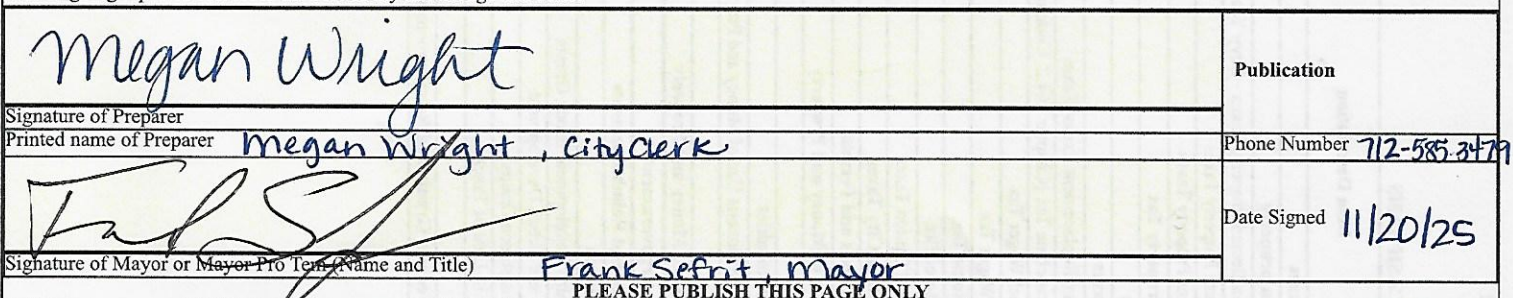 Megan Wright
Publication
Signature of Preparer
Printed name of Preparer Megan Wright, City Clerk
Phone Number 712-585-3479
Date Signed 11/20/25
Signature of Mayor or Mayor Pro Tem (Name and Title) Frank Sefrit, Mayor
PLEASE PUBLISH THIS PAGE ONLY